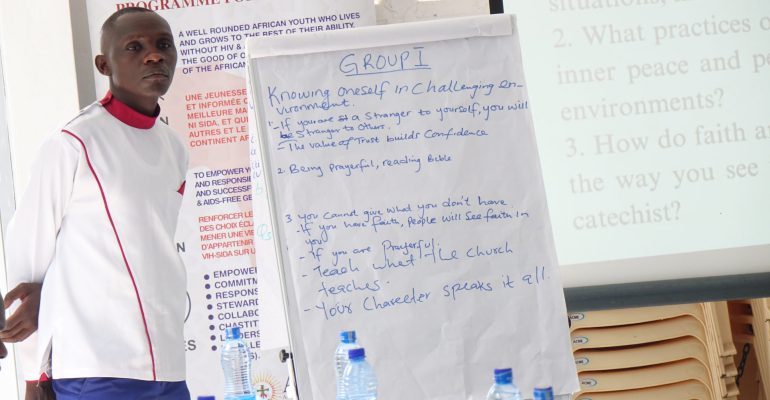 PROGRAMME FO
A WELL ROUNDED AFRICAN YOUTH WHO LIVES
AND GROWS TO THE BEST OF THEIR ABILITY,
WITHOUT HIV &
THE GOOD OF
OF THE AFRICAN
UNE JEUNESSE
ET INFORMÉE
MEILLEURE MA
NI SIDA, ET QUI
AUTRES ET LE
CONTINENT AF
TO EMPOWER Y
AND RESPONSI
AND SUCCESSF
& AIDS-FREE GE
RENFORCER LE
DES CHOIX ÉCLA
MENER UNE VIE
D'APPARTENIR
VIH-SIDA SUR
• EMPOWER
• COMMITM
• RESPONS
• STEWARD
• COLLABO
• CHASTIT
• LEADERS
GROUP I
Knowing oneself in Challenging en-
vironment.
1 - If you are a Stranger to yourself, you will
be Stranger to Others.
- The value of Trust builds Confidence
2. Being Prayerful, reading Bible
3. You Cannot give what you don't have
- If you have faith, People will See faith in
you
- If you are Prayerful.
- Teach what the church
teaches.
- Your Charecter speaks it all.
situations,
2. What practices
inner peace and pe
environments?
3. How do faith a
the way you see
catechist?